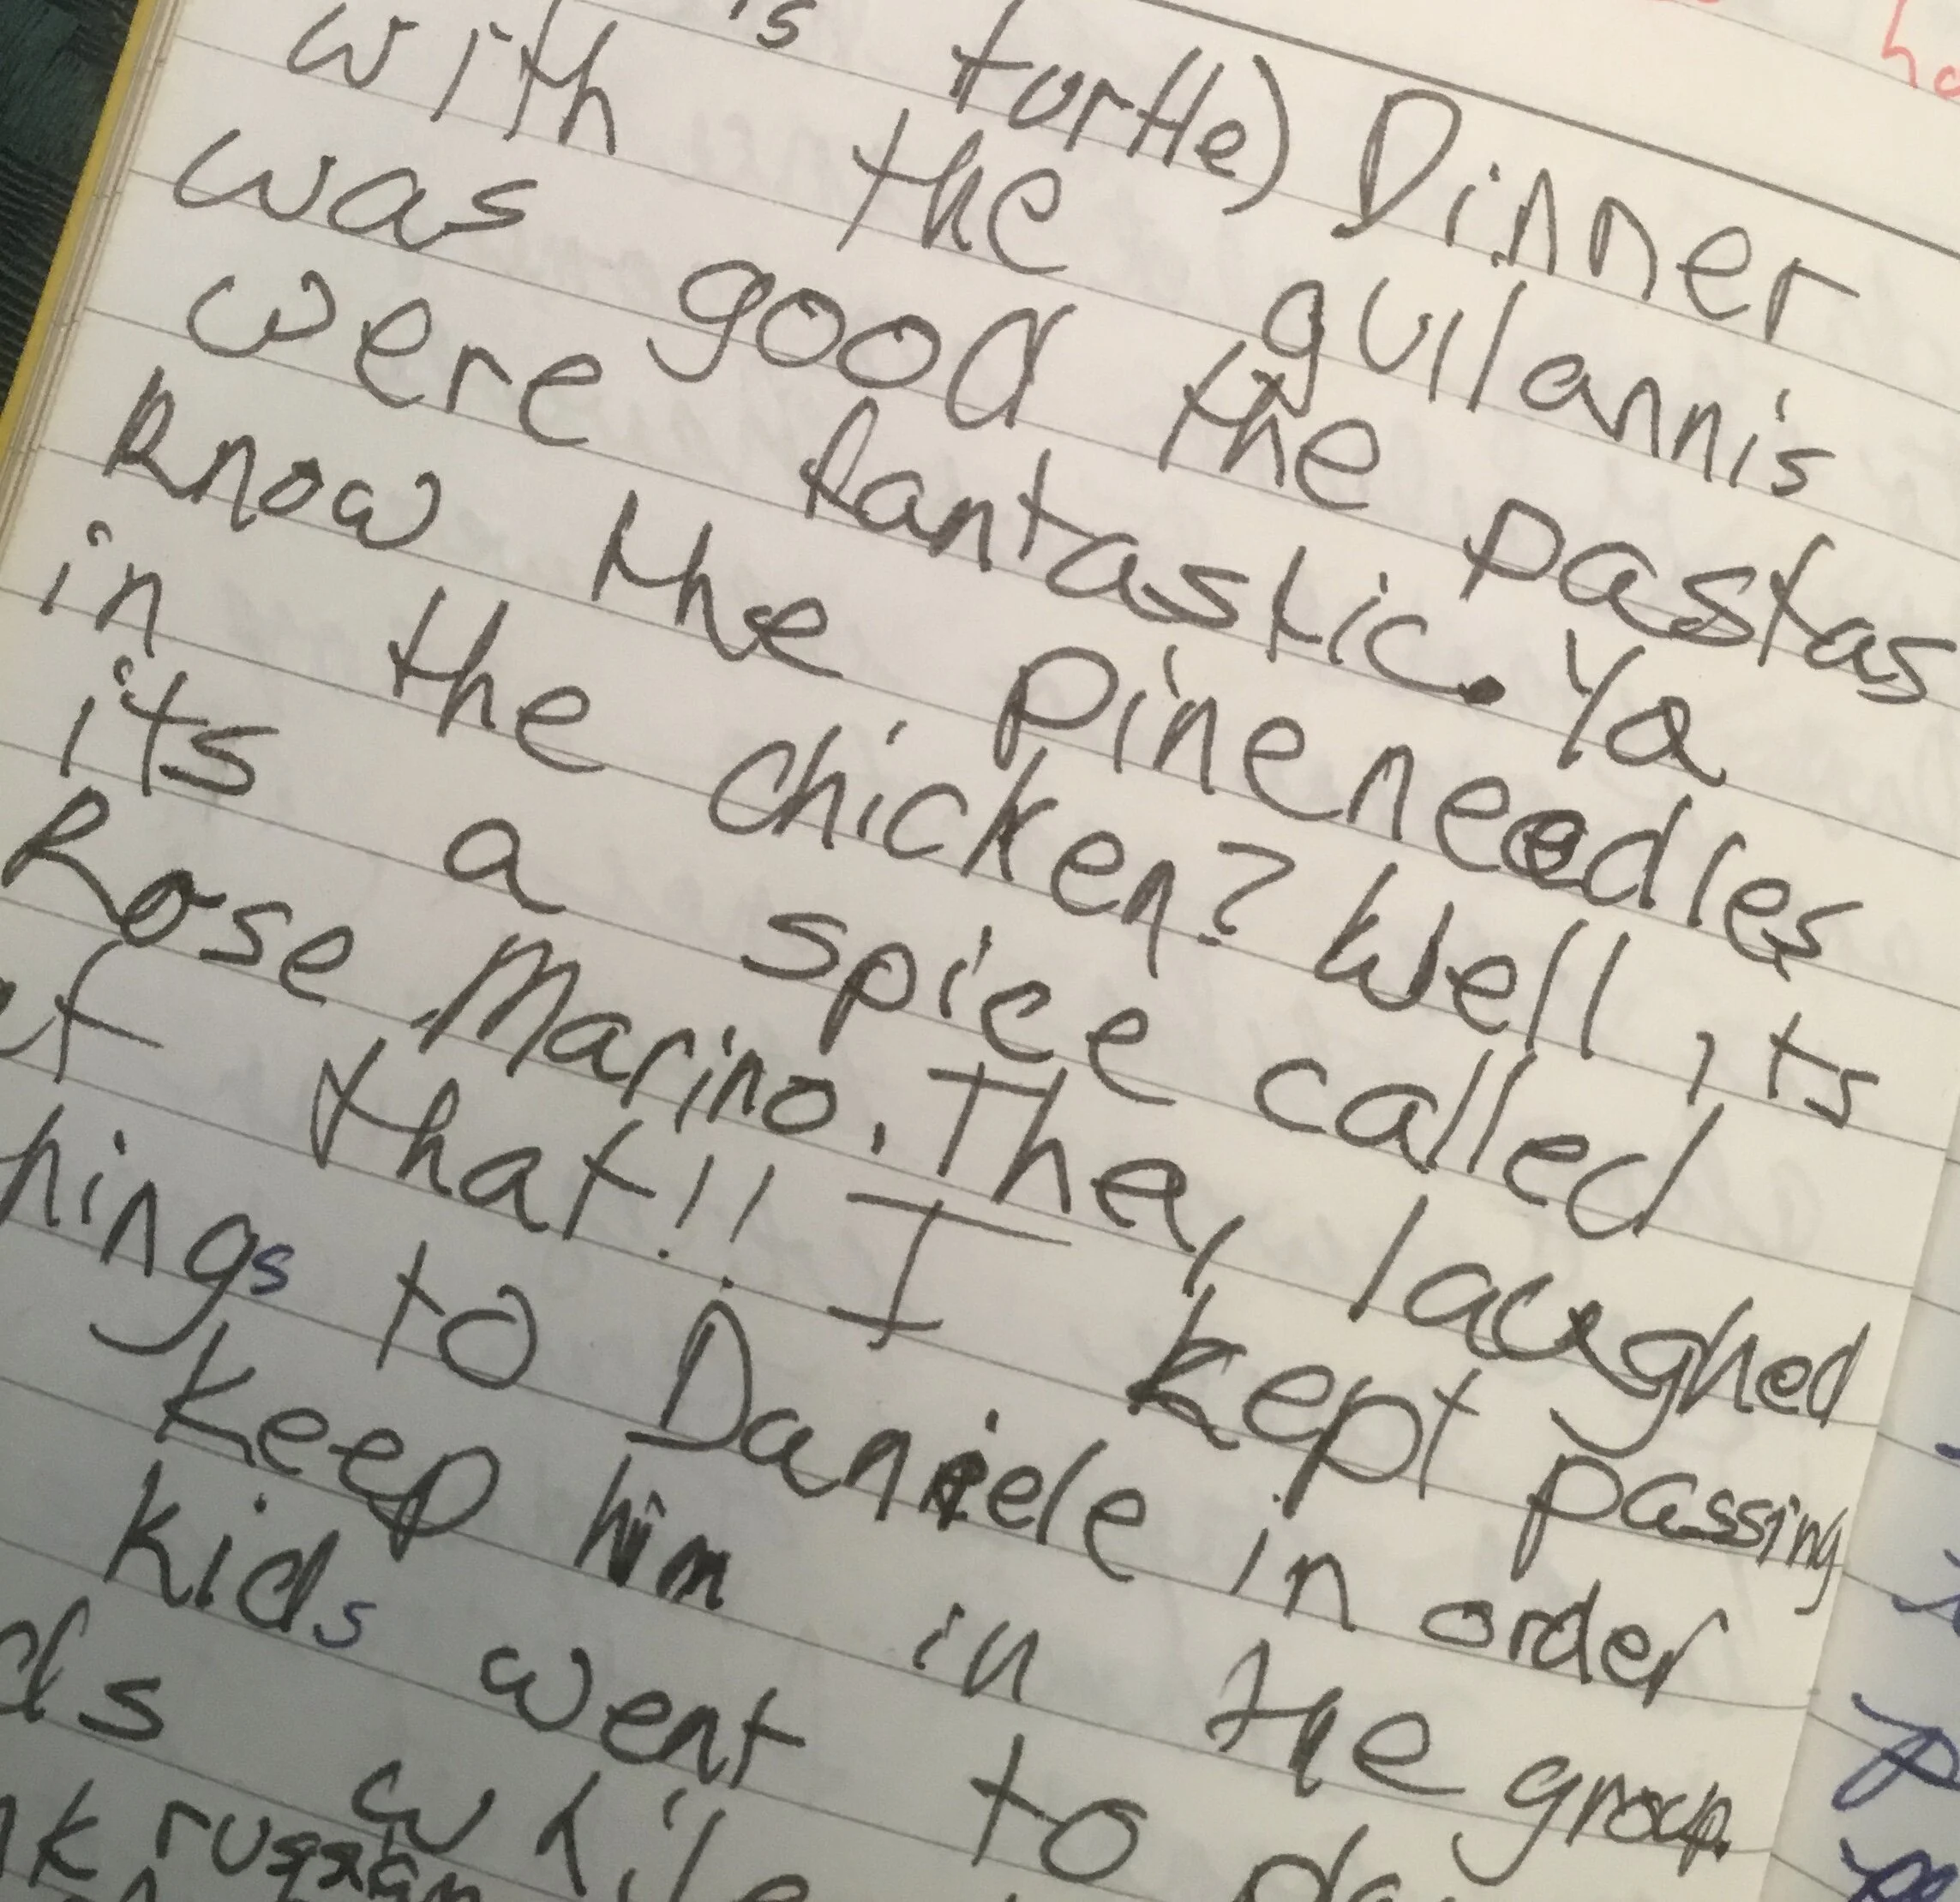 's turtle) Dinner
with the guilannis
was good the pastas
were fantastic. Ya
know the pineneedles
in the chicken? Well, its
its a spice called
Rose Marino. They laughed
at that!! I kept passing
hings to Daniele in order
keep him in the group.
kids went to
ds while
nk russian